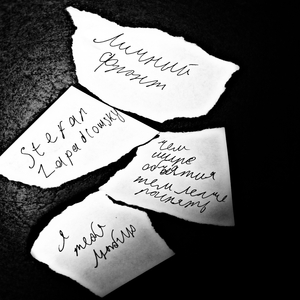 Личний
фронт
Stefan
Zapadlowsky
чем
шире
объятия
тем легче
распять
я
тебя
люблю